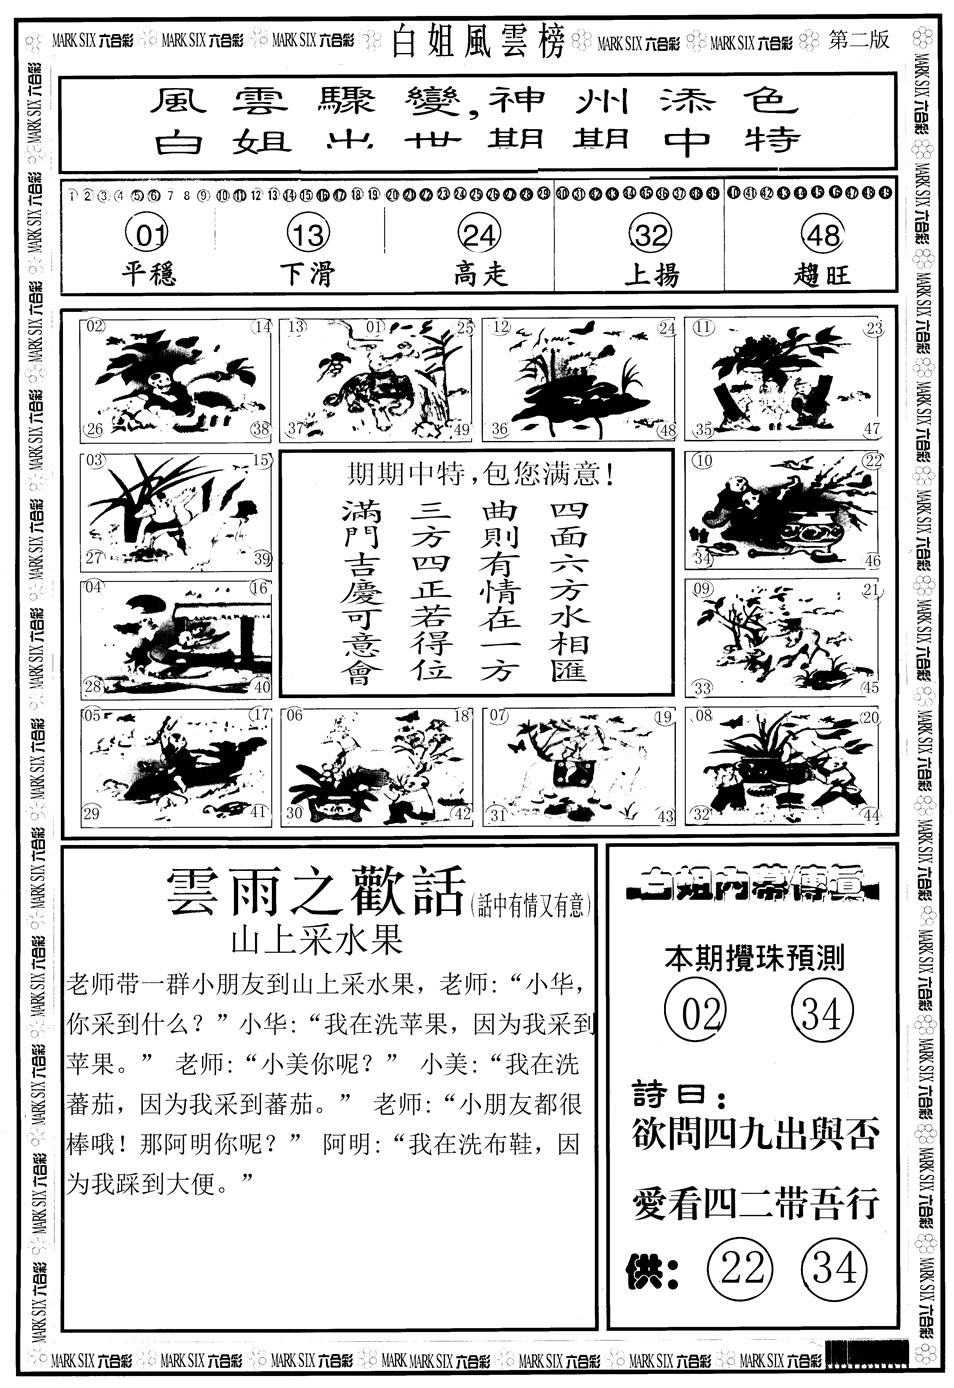 MARK SIX 六合彩 MARK SIX 六合彩 MARK SIX 六合彩 白姐風雲榜 MARK SIX 六合彩 MARK SIX 六合彩 第二版
風雲驟變,神州添色
白姐出世期期中特
1 2 3 4 5 6 7 8 9 10 11 12 13 14 15 16 17 18 19 20 21 22 23 24 25 26 27 28 29 30 31 32 33 34 35 36 37 38 39 40 41 42 43 44 45 46 47 48 49
01 13 24 32 48
平穩 下滑 高走 上揚 趨旺
02 14 13 01 25 12 24 11 23
26 38 37 49 36 48 35 47
03 15
27 39
04 16
28 40
期期中特,包您满意!
四面六方水相匯
曲則有情在一方
三方四正若得位
滿門吉慶可意會
10 22
34 46
09 21
33 45
05 17 06 18 07 19 08 20
29 41 30 42 31 43 32 44
雲雨之歡話(話中有情又有意)
山上采水果
老师带一群小朋友到山上采水果，老师:“小华，
你采到什么？”小华:“我在洗苹果，因为我采到
苹果。” 老师:“小美你呢？” 小美:“我在洗
蕃茄，因为我采到蕃茄。” 老师:“小朋友都很
棒哦！那阿明你呢？” 阿明:“我在洗布鞋，因
为我踩到大便。”
白姐内幕傳真
本期攪珠預測
02 34
詩曰:
欲問四九出與否
愛看四二带吾行
供: 22 34
MARK SIX 六合彩 MARK SIX 六合彩 MARK SIX 六合彩 MARK MARK SIX 六合彩 MARK SIX 六合彩 MARK SIX 六合彩 MARK SIX 六合彩